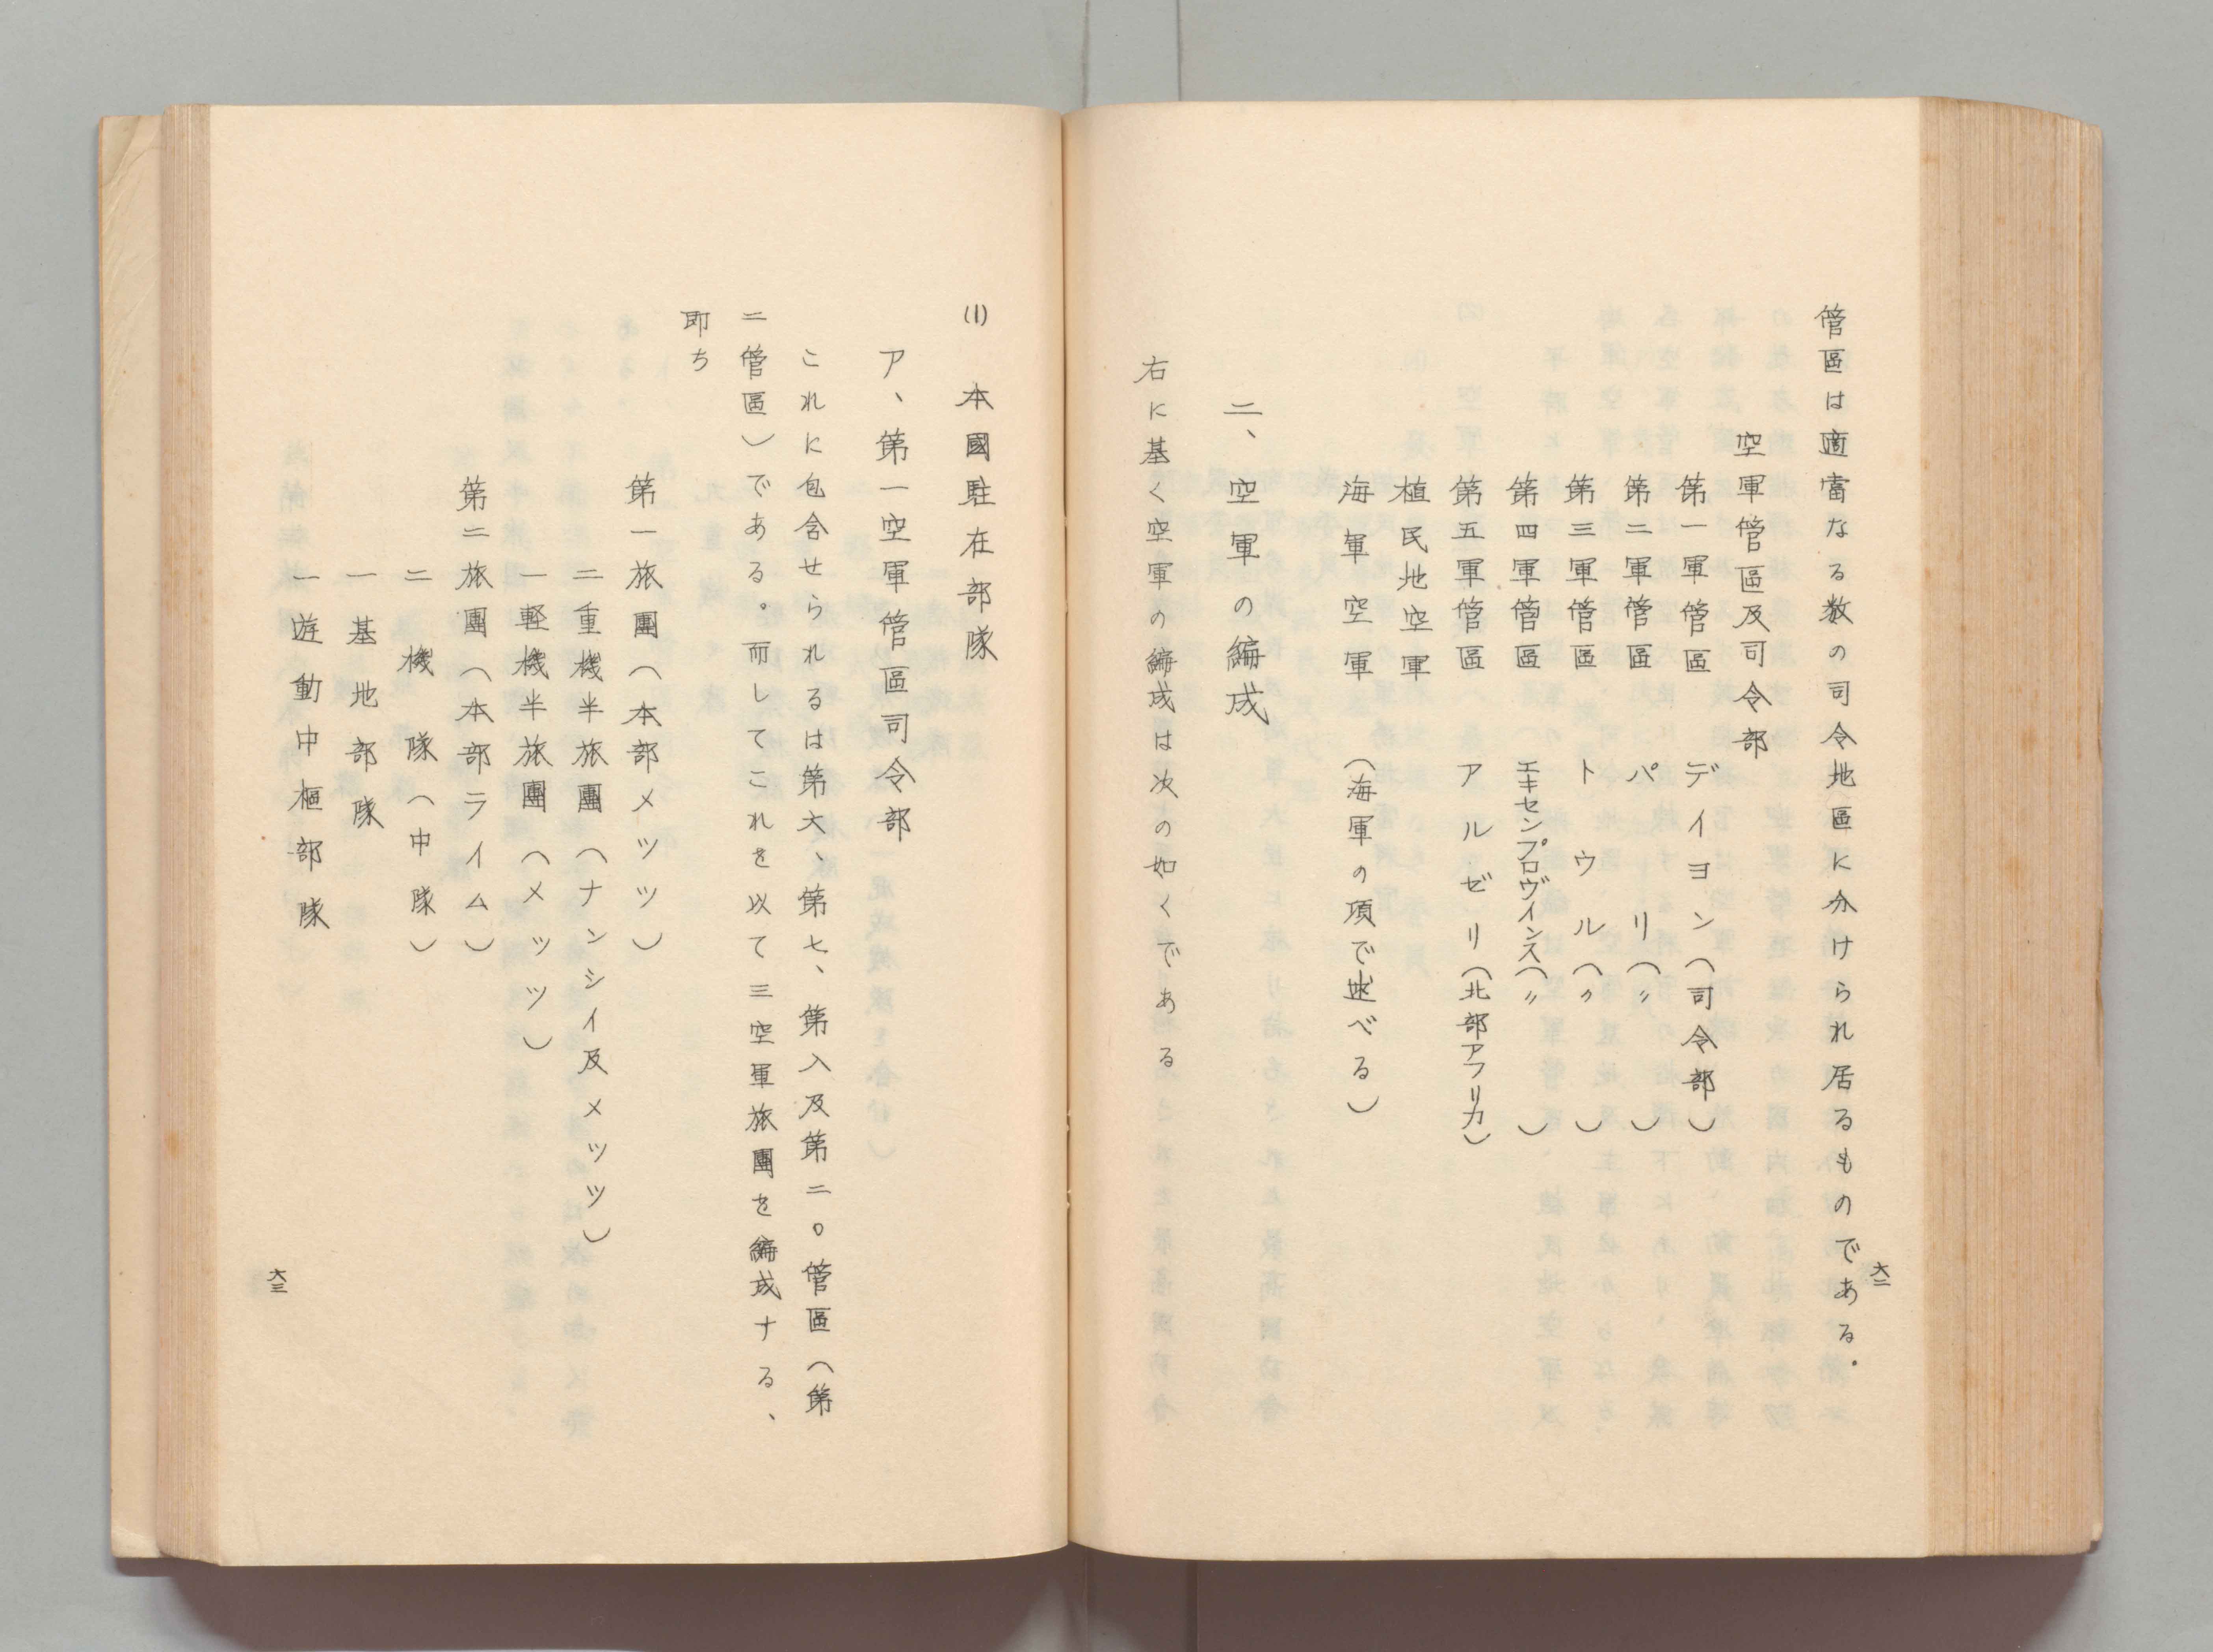 管區は適當なる数の司令地區に分けられ居るものである。
空軍管區及司令部
第一軍管區 デイヨン（司令部）
第二軍管區 パリ（〃）
第三軍管區 トウル（〃）
第四軍管區 エキセンプロヴインス（〃）
第五軍管區 アルゼリ（北部アフリカ）
植民地空軍
海軍空軍 （海軍の項で述べる）
二、空軍の編成
右に基く空軍の編成は次の如くである
六二
(1) 本國駐在部隊
ア、第一空軍管區司令部
これに包含せられるは第六、第七、第八及第二〇管區（第
二管區）である。而してこれを以て三空軍旅團を編成ナる、
即ち
第一旅團（本部メツツ）
二重機半旅團（ナンシイ及メツツ）
一軽機半旅團（メツツ）
第二旅團（本部ライム）
二機隊（中隊）
一基地部隊
一遊動中樞部隊
六三